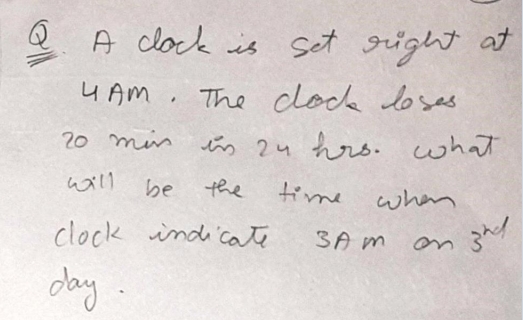 Q. A clock is set right at
4 AM. The clock loses
20 min in 24 hrs. what
will be the time when
clock indicate 3 AM on 3rd
day.